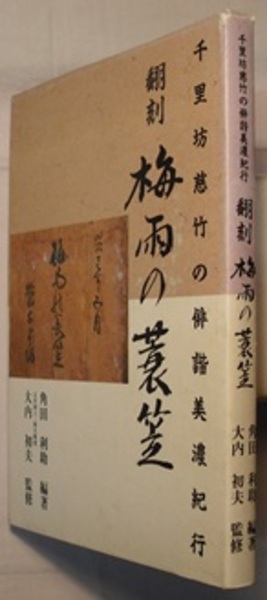 千里坊慈竹の俳諧美濃紀行
翻刻
梅雨の蓑笠
角田利助 編著
大内初夫 監修
千里坊慈竹の俳諧美濃紀行
翻刻
梅雨の蓑笠
角田利助 編著
大内初夫 監修